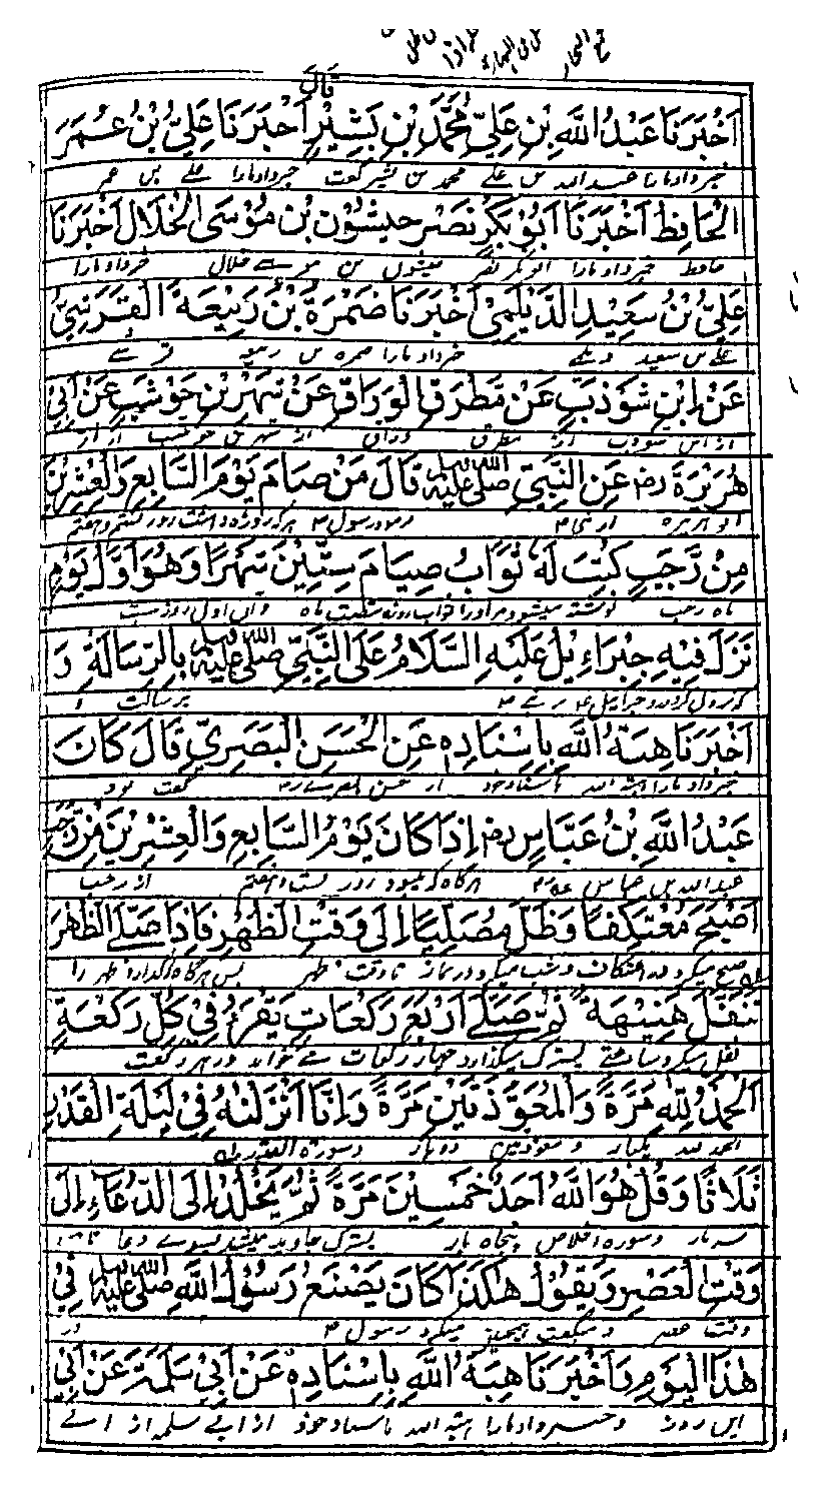 قَالَ
اَخْبَرَنَا عَبْدُ اللّٰهِ بْنِ عَلِيِّ مُحَمَّدِ بْنِ بَشِيْرٍ اَخْبَرَنَا عَلِيُّ بْنُ عُمَرَ
خبر داد مارا عبد الله بن علے محمد بن بشیر گفت خبر داد مارا علے بن عمر
الْحَافِظُ اَخْبَرَنَا اَبُوْ بَكْرٍ نَصْرُ حَبْشُوْنَ بْنِ مُوْسَى الْخَلَّالِ اَخْبَرَنَا
حافظ خبر داد مارا ابو بکر نصر حبشون بن موسے خلال خبر داد مارا
عَلِيُّ بْنُ سَعِيْدِ الدَّيْلَمِيُّ اَخْبَرَنَا ضَمْرَةُ بْنُ رَبِيْعَةَ الْقَرَشِيُّ
علے بن سعید دیلمے خبر داد مارا ضمره بن ربیعه قرشے
عَنْ اِبْنِ شَوْذَبٍ عَنْ مَطَرِقِ الْوَرَاقِ عَنْ شَهْرِ بْنِ حَوْشَبٍ عَنْ اَبِيْ
از ابن شوذب از مطرق وراق از شهر بن حوشب از ابی
هُرَيْرَةَ رض عَنِ النَّبِيِّ صلى الله عليه وسلم قَالَ مَنْ صَامَ يَوْمَ السَّابِعِ وَالْعِشْرِيْنَ
ابو هریره از نبی م فرمود رسول م هر که روزه داشت روز بست و هفتم
مِنْ رَّجَبٍ كُتِبَ لَهٗ ثَوَابُ صِيَامَ سِتِّيْنَ شَهْرًا وَهُوَ اَوَّلُ يَوْمٍ
ماه رجب نوشته میشود مر اورا ثواب روزه شصت ماه و آن اول روزست
نَزَلَ فِيْهِ جِبْرَاءِيْلُ عَلَيْهِ السَّلَامُ عَلَى النَّبِيِّ صلى الله عليه وسلم بِالرِّسَالَةِ وَ
که نزول کرد دو جبرائیل ع بر نبے م برسالت و
اَخْبَرَنَا هِبَةُ اللّٰهِ بِاِسْنَادِهٖ عَنِ الْحَسَنِ الْبَصَرِيِّ قَالَ كَانَ
خبر داد مارا هبة الله باسناد خود از حسن بصرے گفت بود
عَبْدُ اللّٰهِ بْنُ عَبَّاسٍ رض اِذَا كَانَ يَوْمُ السَّابِعِ وَالْعِشْرِيْنَ مِنْ رَّجَبٍ
عبد الله بن عباس هر گاه که میبود روز بست و هفتم از رجب
اَصْبَحَ مُعْتَكِفًا وَظَلَّ مُصَلِّيًا اِلٰى وَقْتِ الظُّهْرِ فَاِذَا صَلَّے الظُّهْرَ
صبح میکرد در اعتکاف و شب میکرد در نماز تا وقت ظهر پس هر گاه گذارد ظهر را
تَنَفَّلَ هُنَيْهَةً ثُمَّ صَلَّے اَرْبَعَ رَكَعَاتٍ يَقْرَءُ فِيْ كُلِّ رَكْعَةٍ
نفل میکرد ساعتے پستر میگذارد چهار رکعات مے خواند در هر رکعت
اَلْحَمْدُ لِلّٰهِ مَرَّةً وَالْمُعَوَّذَتَيْنِ مَرَّةً وَاِنَّا اَنْزَلْنٰهُ فِيْ لَيْلَةِ الْقَدْرِ
الحمد لله یکبار و معوذتین و سورة القدر را
ثَلَاثًا وَقُلْ هُوَ اللّٰهُ اَحَدٌ خَمْسِيْنَ مَرَّةً ثُمَّ يَخْلُدُ اِلَى الدُّعَاءِ اِلٰى
سه بار و سوره اخلاص پنجاه بار پستر جاوید میشد بسوے دعا تا
وَقْتِ الْعَصْرِ وَيَقُوْلُ هٰكَذَا كَانَ يَصْنَعُ رَسُوْلُ اللّٰهِ صلى الله عليه وسلم فِيْ
وقت عصر و میگفت همچنین میکرد رسول م در
هٰذَا الْيَوْمِ وَاَخْبَرَنَا هِبَةُ اللّٰهِ بِاِسْنَادِهٖ عَنْ اَبِيْ سَلَمَةَ عَنْ اَبِيْ
این روز و خبر داد مارا هبة الله باسناد خود از ابے سلمه از ابے